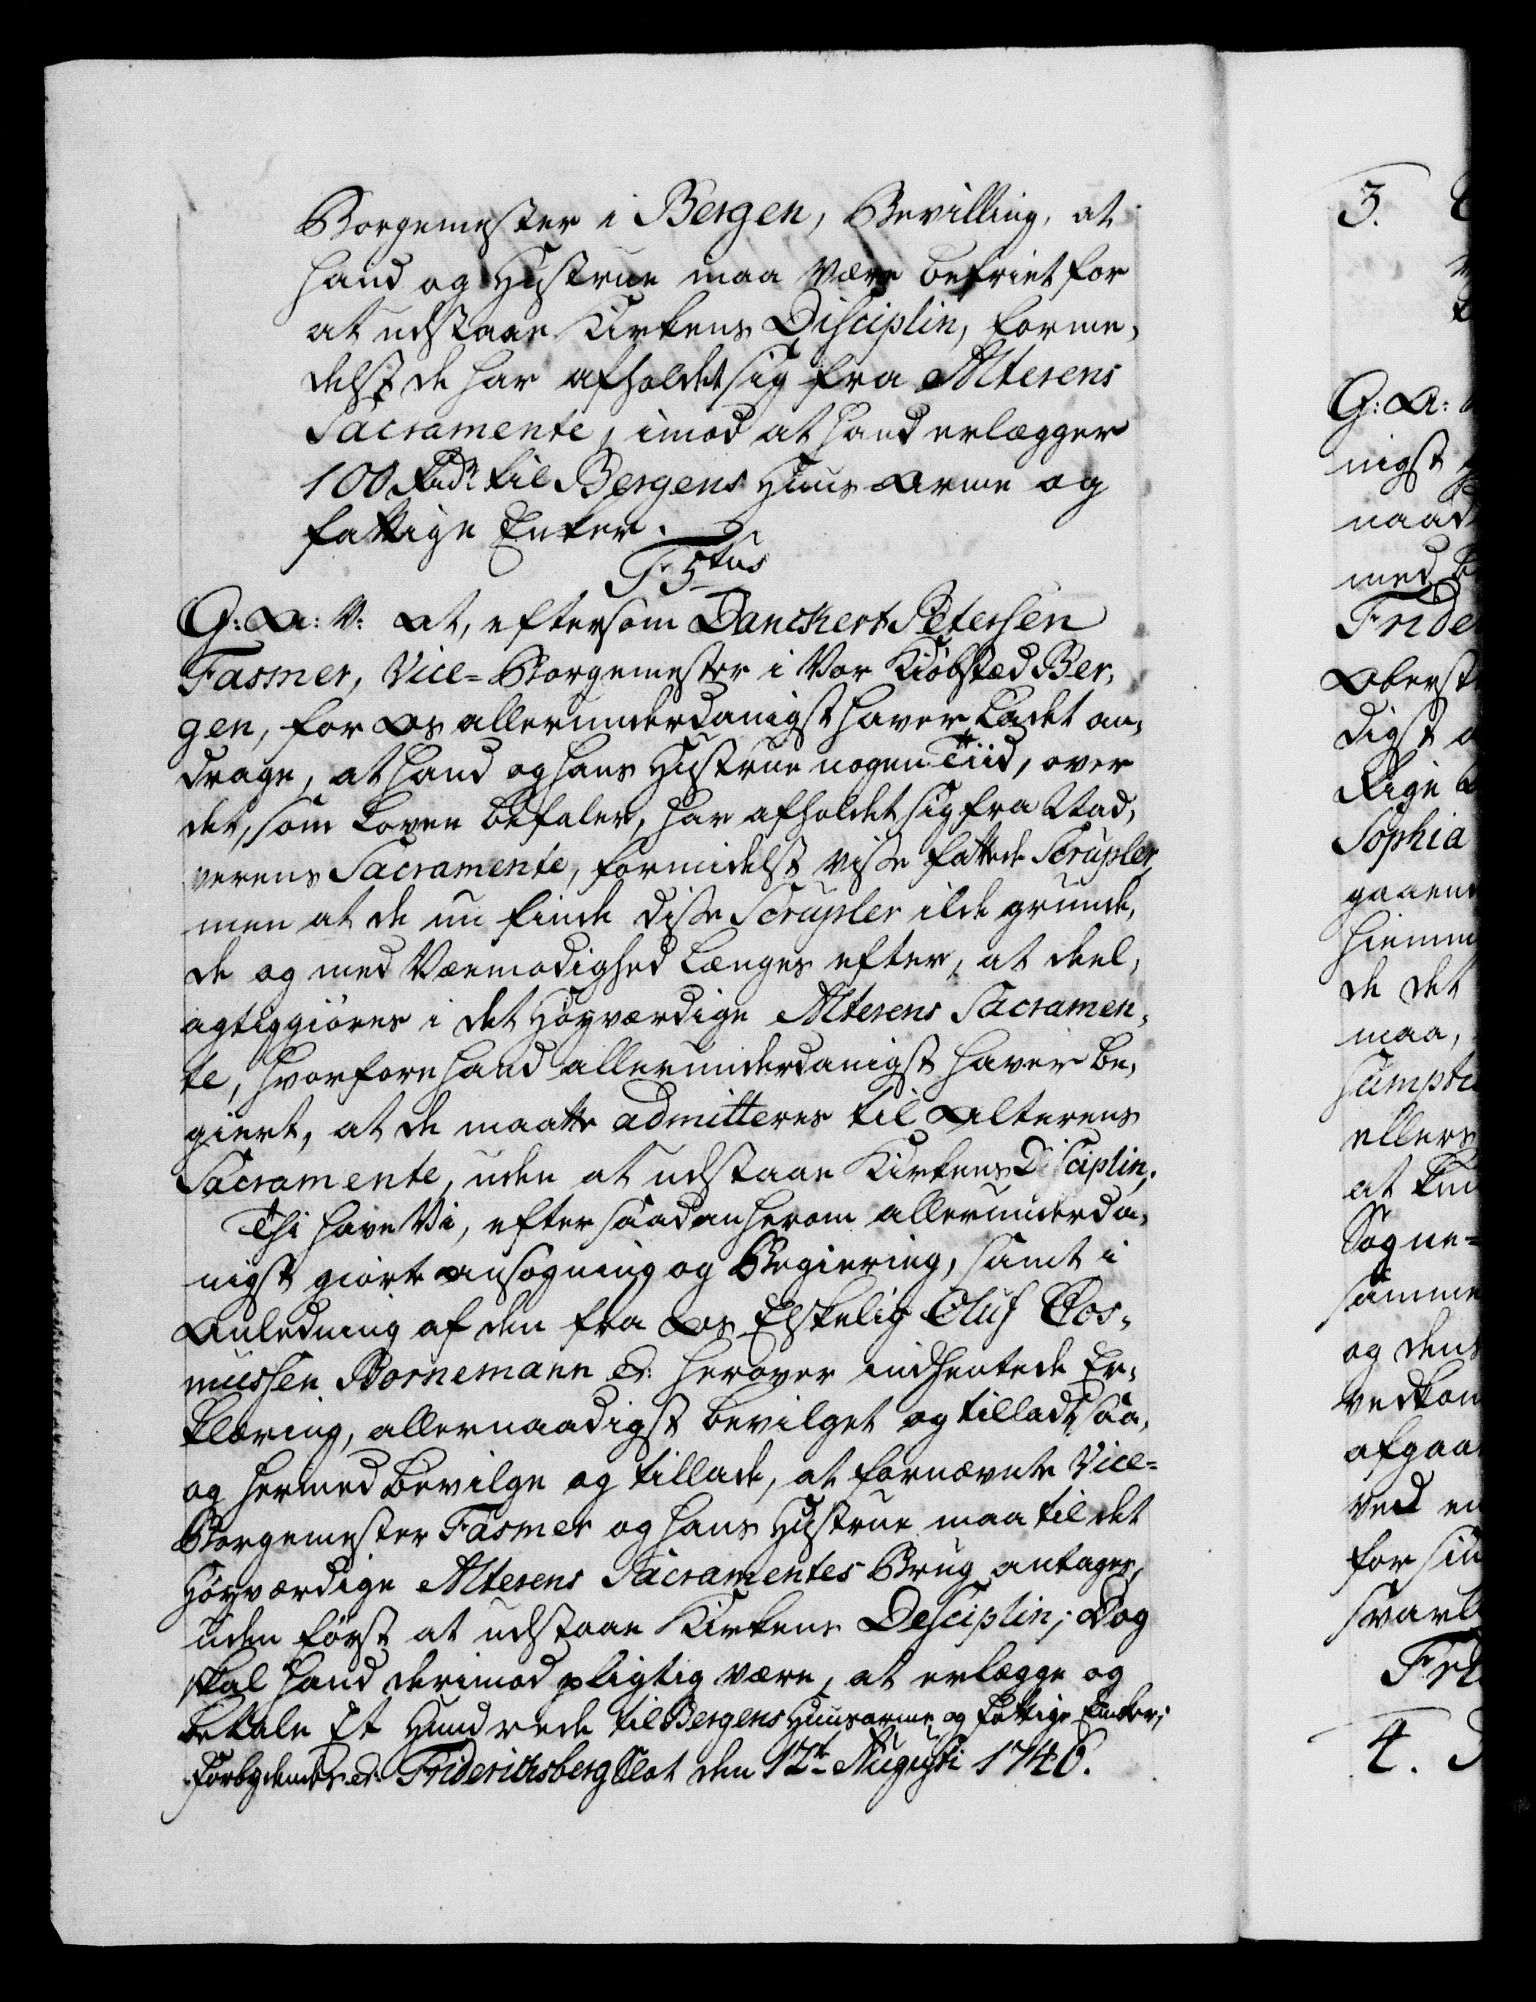 Borgemester i Bergen, Bevilling, at
hand og Hustrue maa være befriet for
at udstaae Kirkens Disciplin, forme,
delst de har afholdet sig fra Alterens
Sacramente, imod at hand erlægger
100 Rdr. til Bergens Huus Arme og
fattige Enker.
F: 5tus
G: A: V: At, eftersom Danckert Petersen
Fasmer, Vice-Borgemester i Vor Kiøbsted Ber,
gen, for Os allerunderdanigst haver ladet an,
drage, at hand og hans Hustrue nogen Tiid, over
det, som Loven befaler, har afholdet sig fra Nad,
verens Sacramente, formidelst visse fattede Scrupler,
men at de nu finde disse Scrupler ilde grunde,
de og med Veemodighed længes efter, at deel,
agtiggiøres i det Høyværdige Alterens Sacramen,
te, hvorfore hand allerunderdanigst haver be,
giert, at de maatte admitteres til Alterens
Sacramente, uden at udstaae Kirkens Disciplin;
Thi have Vi, efter saadan herom allerunderda,
nigst giorte Ansøgning og Begiering, samt i
Anledning af den fra Os Elskelig Oluf Cos,
mussen Bornemann &c: herover indhentede Er,
klæring, allernaadigst bevilget og tilladt, saa,
og hermed bevilge og tillade, at fornævnte Vice-
Borgemester Fasmer og hans Hustrue maa til det
Høyværdige Alterens Sacramentes Brug antages,
uden først at udstaae Kirkens Desciplin; Dog
skal hand derimod pligtig være, at erlægge og
betale Et Hundrede til Bergens Huusarme og fattige Enker;
Forbydendes &c. Friderichsberg Slot den 12te Augusti 1746.
3.
G: A:
nigst
naad
med
Fride
Oberst
digst
Rige
Sophia
gaaend
hiemm
de det
maa,
sumpti
ellers
at
Sogne-
samme
og dens
vedkom
afgaa
ved en
for sin
svarl
Fri
4.